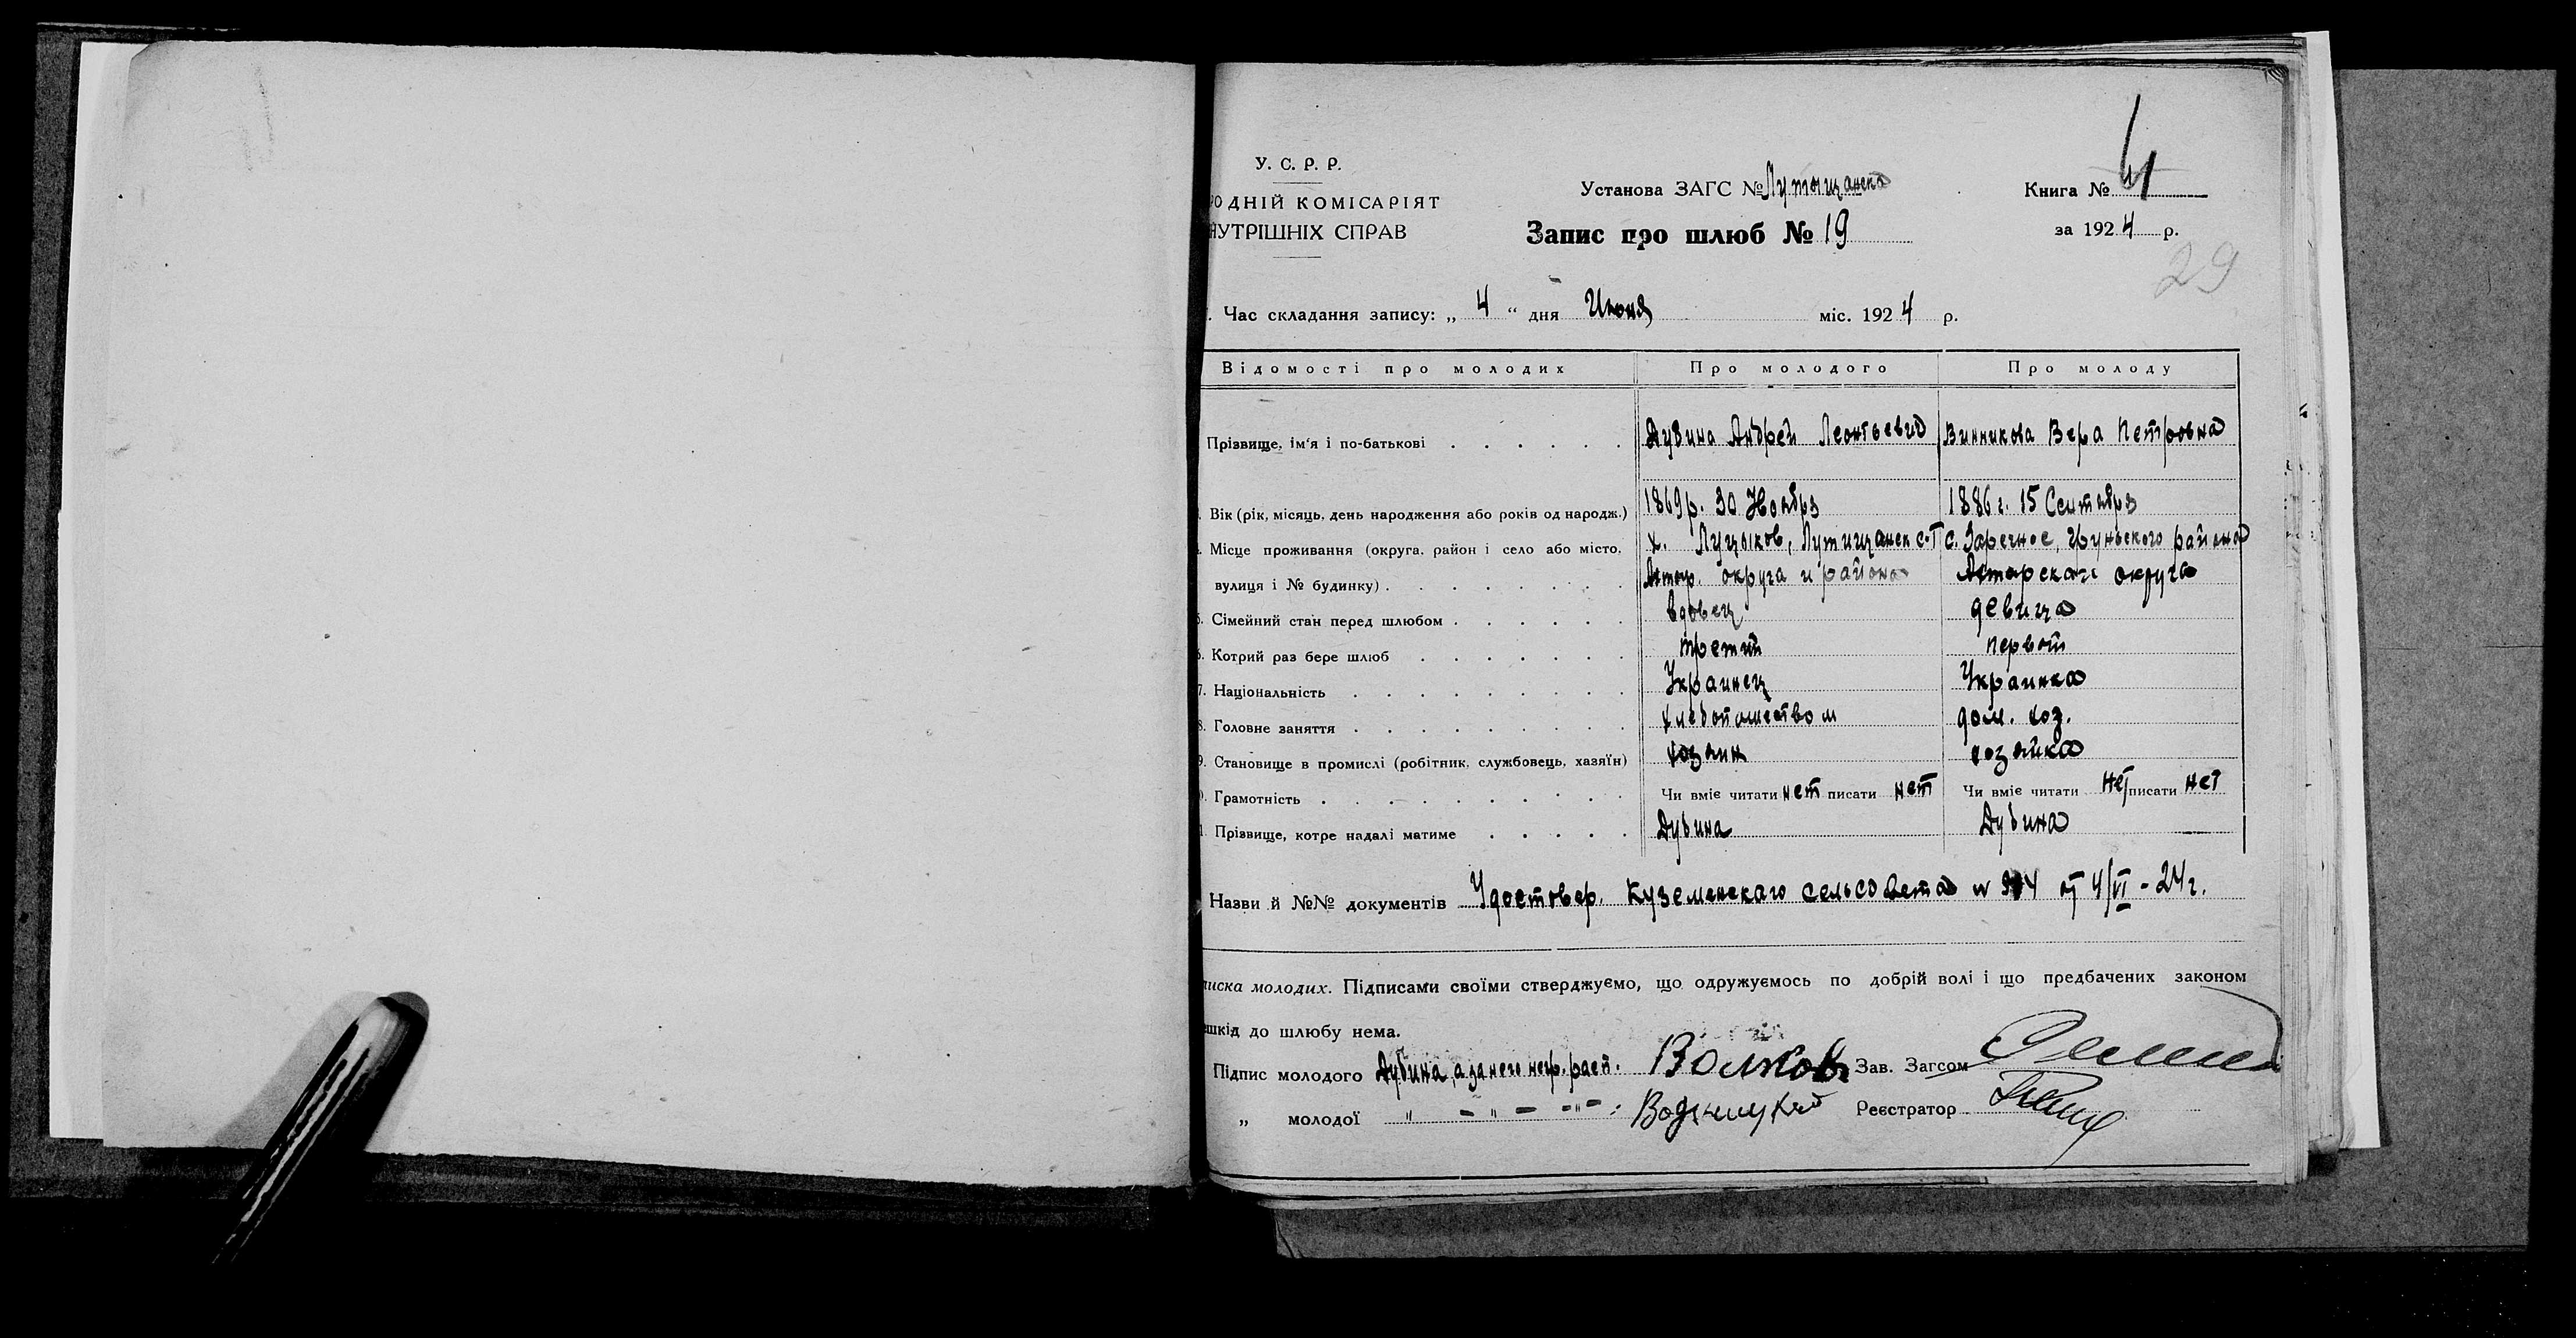 У. С. Р. Р.
ОДНІЙ КОМІСАРІЯТ
НУТРІШНІХ СПРАВ
Установа ЗАГС № Лутищанска
Запис про шлюб № 19
Книга № 4
за 1924 р.
29
Час складання запису: „ 4 “ дня Июня міс. 1924 р.
Відомості про молодих Про молодого Про молоду
Прізвище, ім'я і по-батькові Дубина Андрей Леонтьевич Винникова Вера Петровна
Вік (рік, місяць, день народження або років од народж.) 1869 р. 30 Ноября 1886 г. 15 Сентября
Місце проживання (округа, район і село або місто, х. Луцыков, Лутищанск с-т с. Заречное, Груньского района
вулиця і № будинку) Ахтыр. округа и района Ахтырской округа
Сімейний стан перед шлюбом вдовец девица
6. Котрий раз бере шлюб третий первый
7. Національність Украинец Украинка
8. Головне заняття хлебопашеством дом. хоз.
9. Становище в промислі (робітник, службовець, хазяїн) хозяин хозяйка
Грамотність Чи вміє читати нет писати нет Чи вміє читати нет писати нет
Прізвище, котре надалі матиме Дубина Дубина
Назви й №№ документів Удостовер. Куземенскаго сельсовета от 4/VI - 24 г.
иска молодих. Підписами своїми стверджуємо, що одружуємось по добрій волі і що предбачених законом
шкід до шлюбу нема.
Підпис молодого Дубина, а за него негр. расп. Волков Зав. Загсом
„ молодої " - " - -"- : Реєстратор